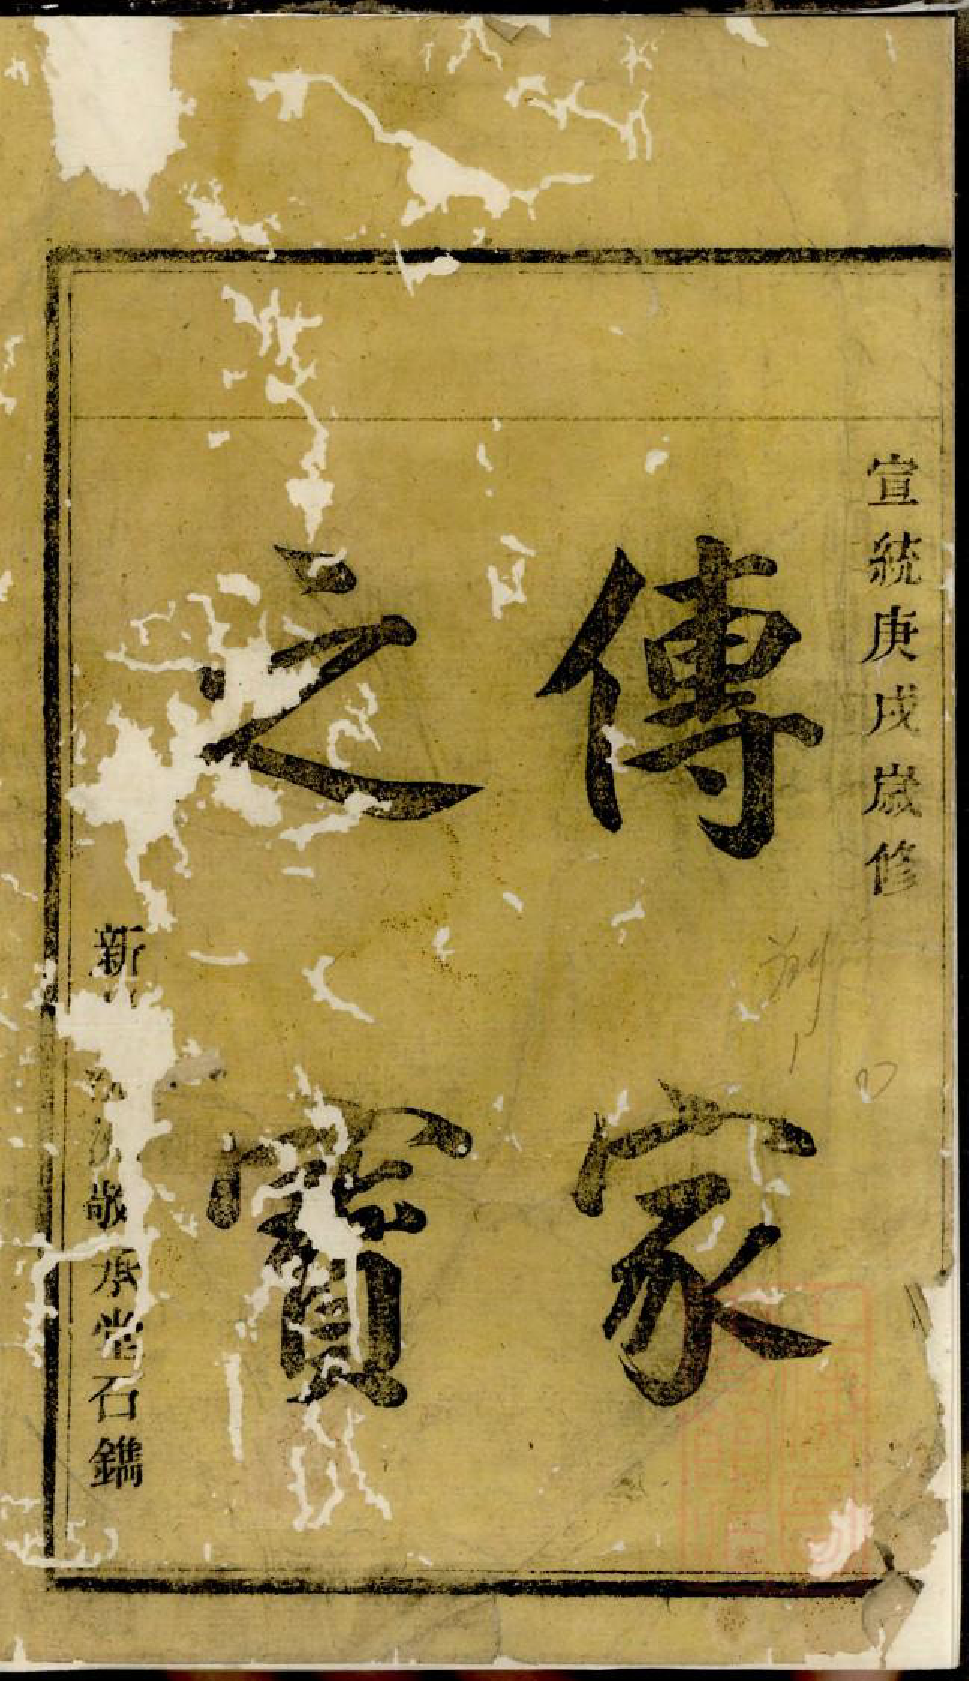 宣統庚戌歲修
傳家
之寶
新
敬承堂石鐫